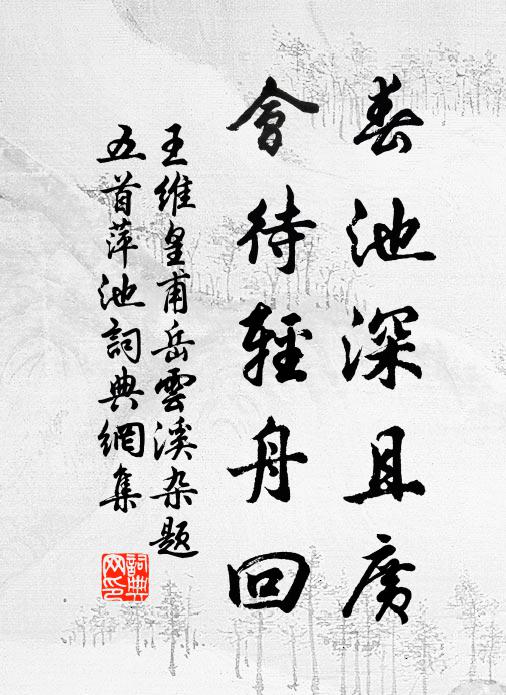 春池深且廣
會待輕舟回
王維皇甫岳雲溪杂題
五首萍池詞典網集
詞典网印